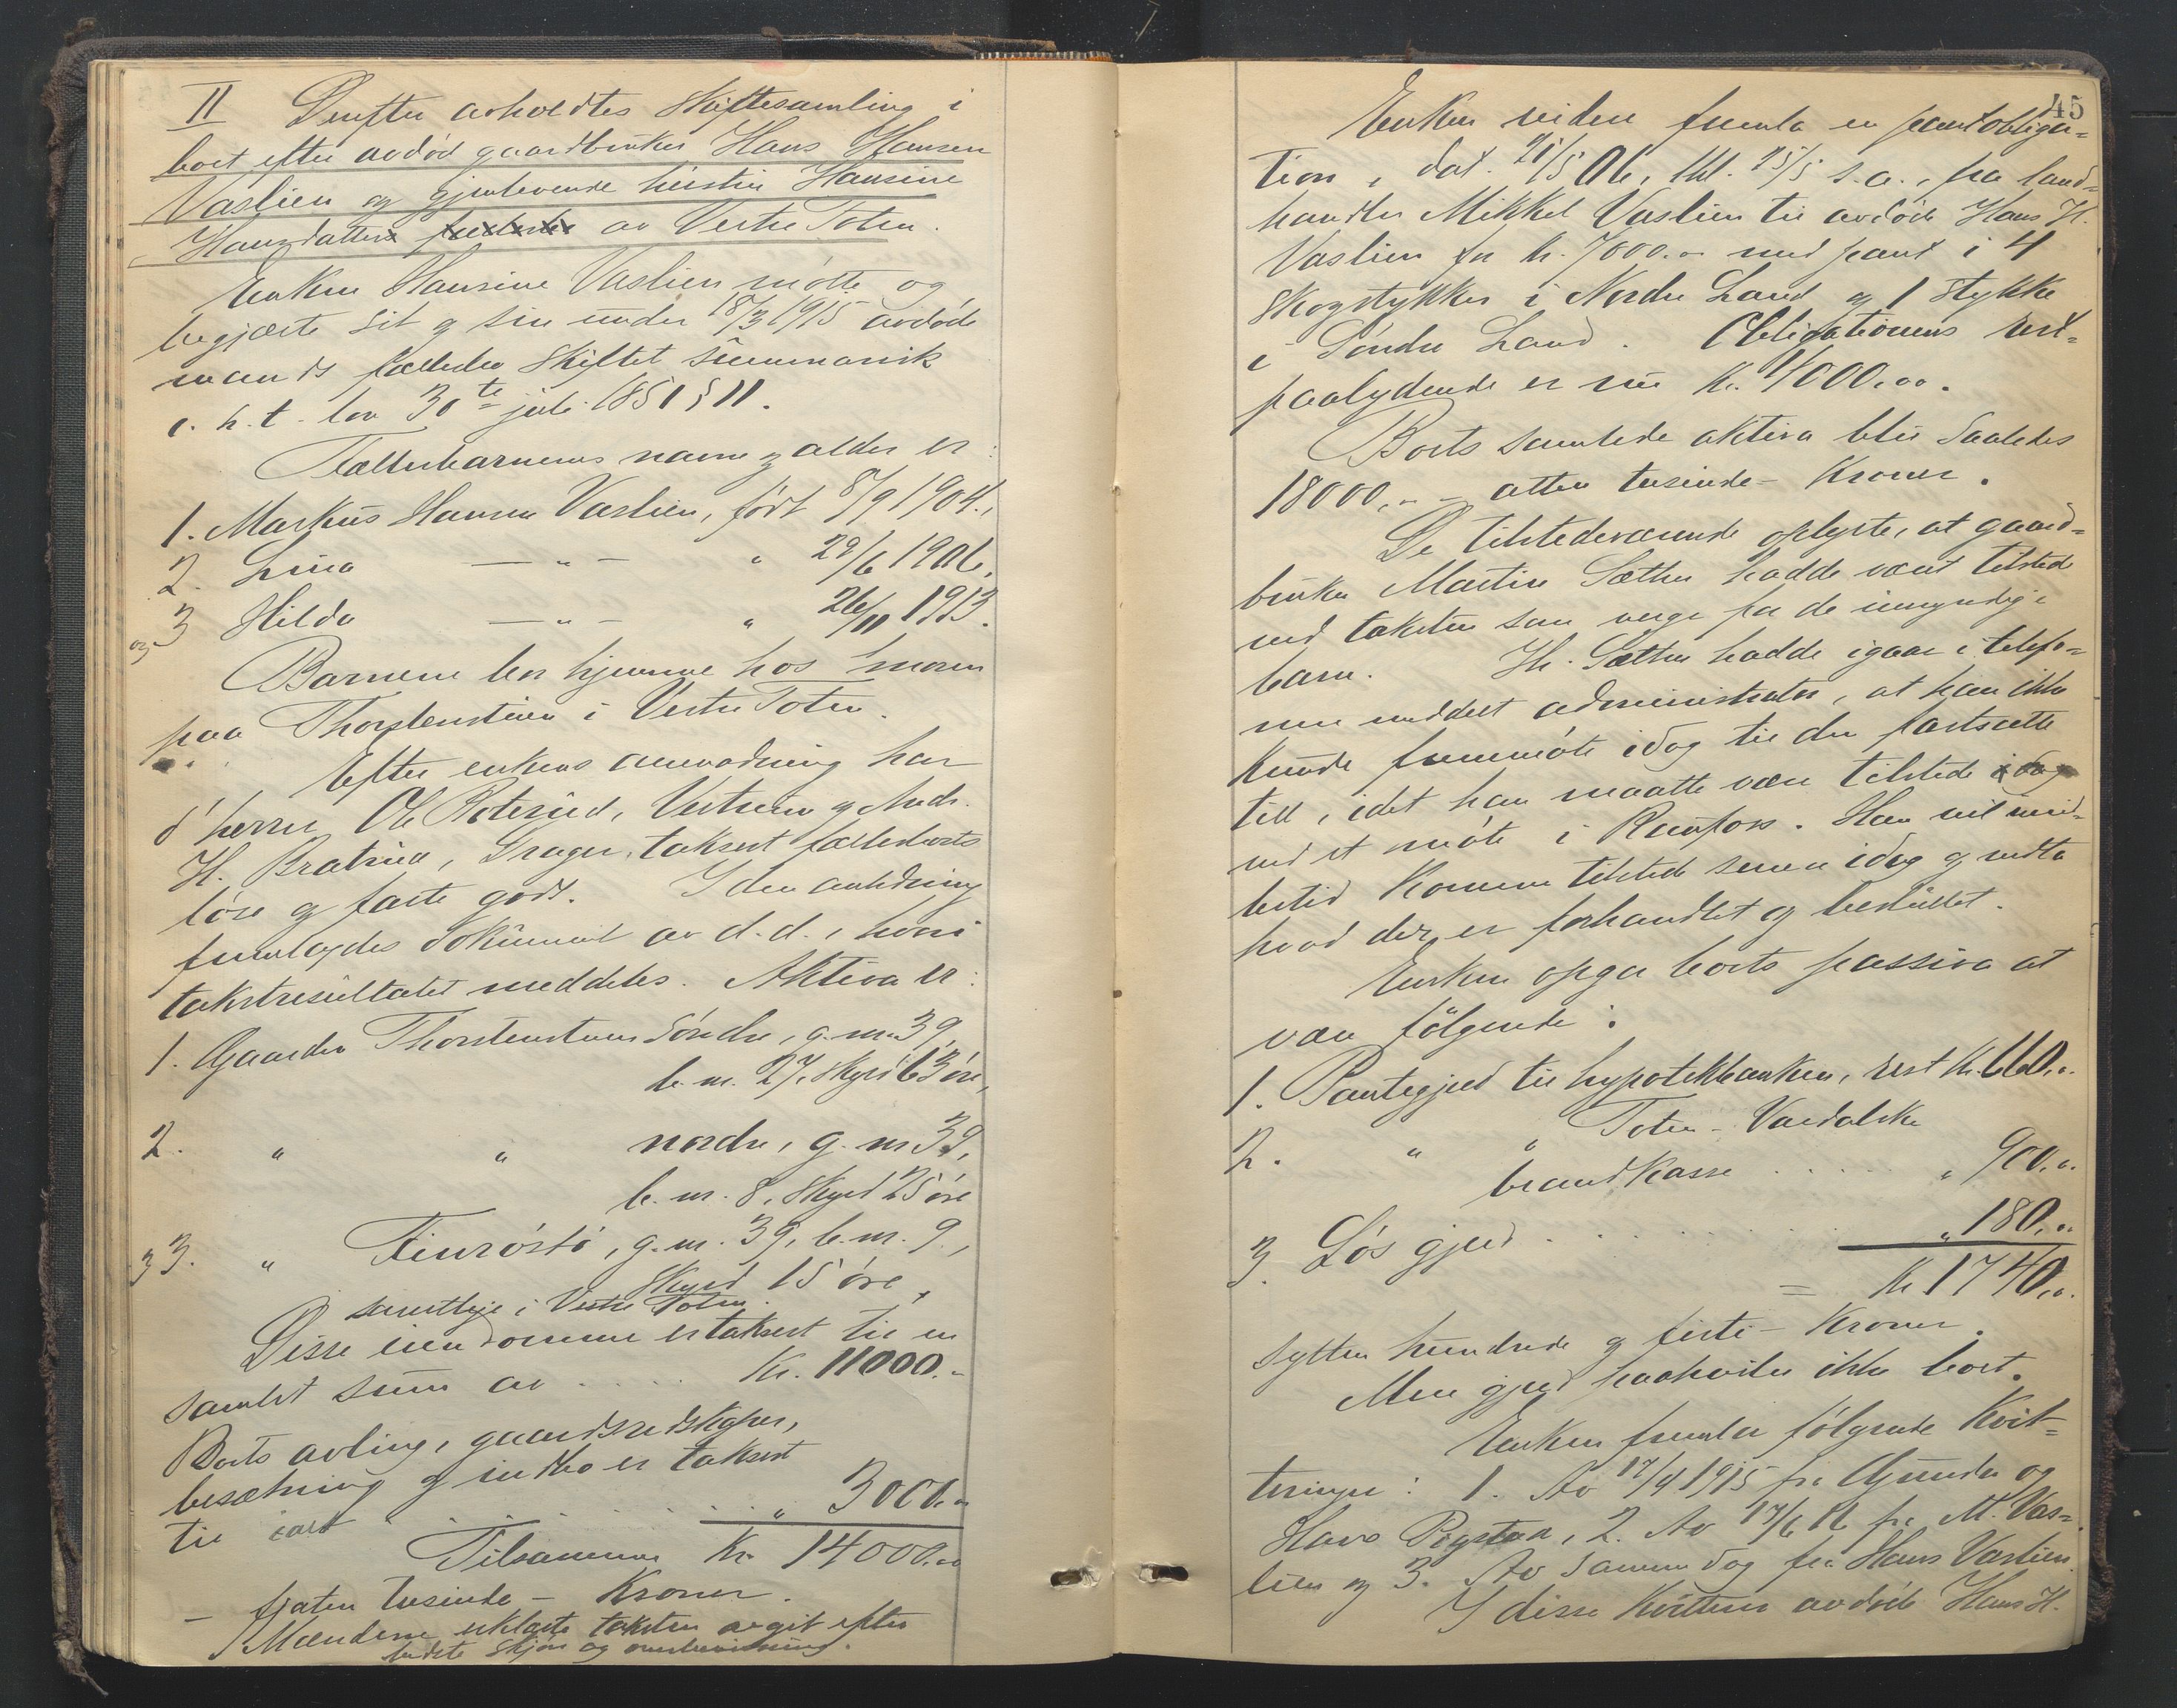 II Derefter avholdtes Skiftesamling i
boet efter avdød gaardbruker Hans Hansen
Vaslien og gjenlevende hustru Hansine
Hansdatter av Vestre Toten.
Enken Hansine Vaslien møtte og
begjærte sit og sin under 18/3 1915 avdøde
mands fællesbo skiftet summarisk
i. h. t. lov 30te juli 1851 § 11.
Fællesbarnenes navne og alder er:
1. Markus Hansen Vaslien, født 8/9 1904.,
2. Lina — „ — „ 29/6 1906,
og 3 Hilda — „ — „ 26/11 1913.
Barnene bor hjemme hos moren
paa Thorstenstuen i Vestre Toten.
Efter enkens anmodning har
d'herrer Ole Roterud, Vestrum og Andr.
H. Bratrud, Krager, taksert fællesboets
løse og faste gods. I den anledning
fremlagdes dokument av d. d., hvori
takstresultatet meddeles. Aktiva er:
1. Gaarden Thorstenstuen søndre, g. nr. 39,
b. nr. 27, Skyld 63 øre,
2. „ „ nordre, g. nr 39,
b. nr. 8, Skyld 25 øre
3 3. „ Finrøstø, g. nr. 39, b. nr. 9,
Skyld 15 øre,
samtlige i Vestre Toten.
Disse eiendomme er taksert til en
samlet sum av . . . . . Kr. 11000.-
Boets avling, gaardsredskaper,
besætning og indbo er taksert
til ialt . . . . . . . „ 3000.-
Tilsammen Kr. 14000.00
- fjorten tusinde - Kroner.
Mændene erklærte taksten avgit efter
bedste skjøn og overbevisning.
45
Enken videre fremla en pantobliga=
tion, dat. 21/5 06, thl. 25/5 s. a., fra land=
handler Mikkel Vaslien til avdøde Hans H.
Vaslien for kr. 7000.00 med pant i 4
skogstykker i Nordre Land og 1 stykke
i Søndre Land. Obligationens rest=
paalydende er nu kr. 4000.00.
Boets samlede aktiva blir saaledes
18000.- - atten tusinde - Kroner.
De tilstedeværende oplyste, at gaard=
bruker Martin Sæther hadde været tilstede
ved taksten som verge for de umyndige
barn. Hr. Sæther hadde igaar i telefo=
nen meddelt administrator, at han ikke
kunde fremmøte idag til den fastsatte
tid, idet han maatte være tilstede idag
ved et møte i Raufoss. Han vil imid=
lertid komme tilstede senere idag og vedta
hvad der er forhandlet og besluttet.
Enken opga boets passiva at
være følgende:
1. Pantegjæld til hypotekbanken, rest Kr. 660.00
2. „ „ Toten - Vardalske
brandkasse . . . . . „ 900.00
3. Løs gjæld . . . . . . . „ 180.00
= Kr 1740.00.
sytten hundrede og firti - Kroner.
Mere gjæld paahviler ikke boet.
Enken fremla følgende kvit=
teringer: 1. Av 17/4 1915 fra Gunda og
Hans Rogstad, 2. Av 17/6 16 fra M. Vas=
lien og 3. Av samme dag fra Hans Vaslien.
I disse kvitteres avdøde Hans H.